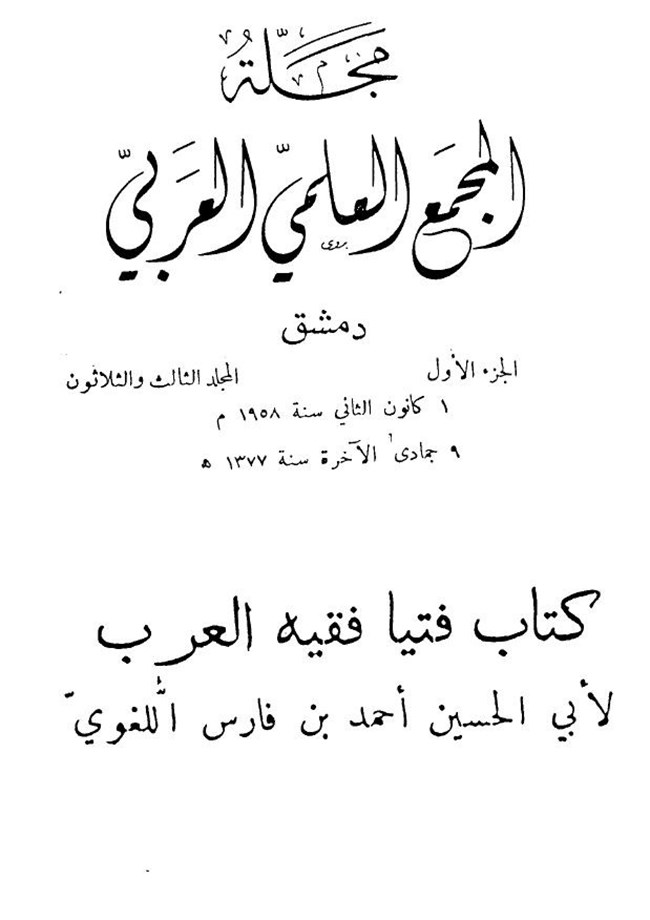 مجلة
المجمع العلمي العربي
دمشق
الجزء الأول المجلد الثالث والثلاثون
١ كانون الثاني سنة ١٩٥٨ م
٩ جمادى الآخرة سنة ١٣٧٧ ه
كتاب فتيا فقيه العرب
لأبي الحسين أحمد بن فارس اللغويّ